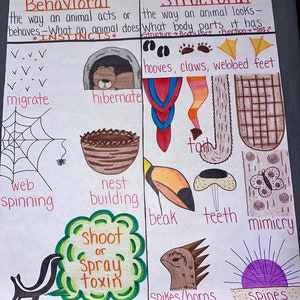 Behavioral
the way an animal acts or
behaves - What an animal does
*INSTINCTS*
migrate
hibernate
web
spinning
nest
building
shoot
or
spray
toxin
the way an animal looks -
What body parts it has
hooves, claws, webbed feet
tail
beak
teeth
mimicry
spikes/horns
spines